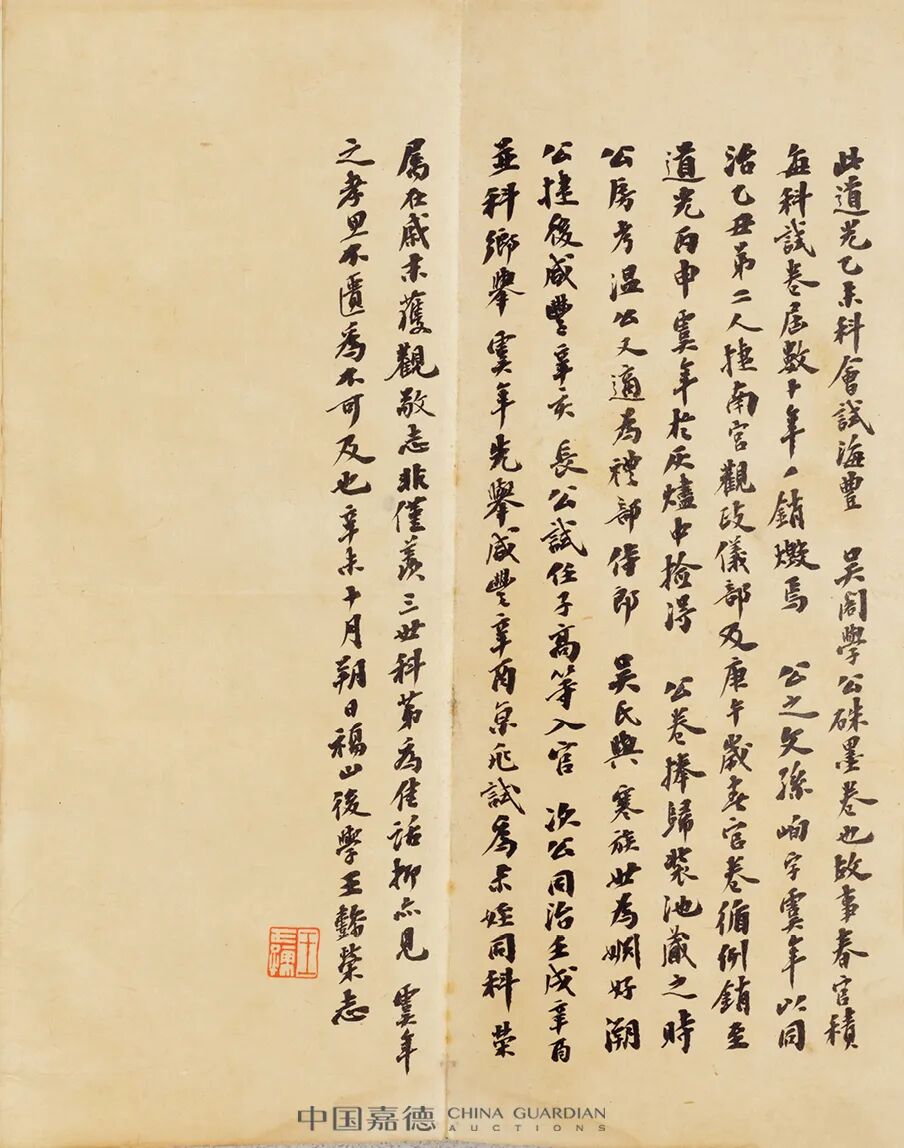 此道光乙未科會試海豐　吳閣學公硃墨卷也故事春官積
每科試卷届數十年、銷燬焉　公之文孫峋字寞年以同
治乙丑第二人捷南宮觀政儀部及庚午歲春官卷循例銷至
道光丙申寞年於灰燼中撿得　公卷捧歸裝池藏之時
公房考溫公又適為禮部侍郎　吳氏與　寒族世為姻好溯
公捷後咸豐辛亥　長公試任子高等入官　次公同治壬戌辛酉
並科鄉舉　寞年先舉咸豐辛酉京兆試為未姪同科榮
屬在戚末獲觀敬志非僅羨三世科第為佳話抑亦見　寞年
之孝思不匱為不可及也辛未十月朔日福山後學王懿榮志
中国嘉德 CHINA GUARDIAN
AUCTIONS